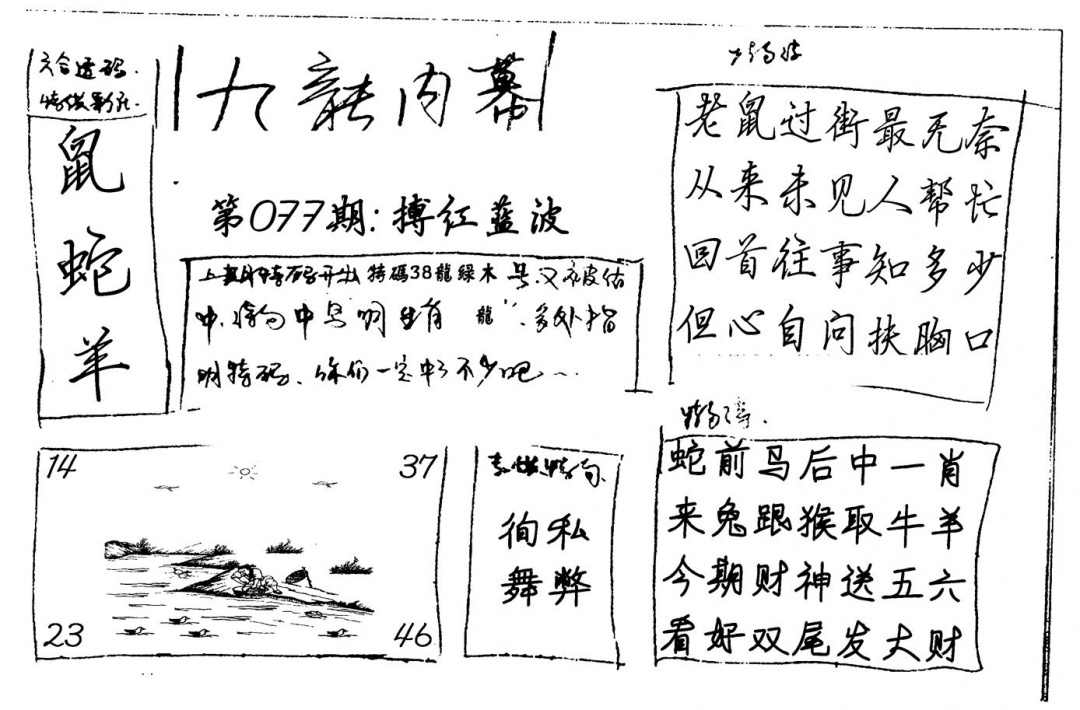 六合透码
鼠
蛇
羊
九龍内幕
第077期:搏红蓝波
上期特码开出 特碼38龍綠木 号又被估
中. 特句中 生肖 龍 多处指
明特码、你们一定中了不少吧
老鼠过街最无奈
从来未见人帮忙
回首往事知多少
但心自问扶胸口
14
37
23
46
徇私
舞弊
蛇前马后中一肖
来兔跟猴取牛羊
今期财神送五六
看好双尾发大财